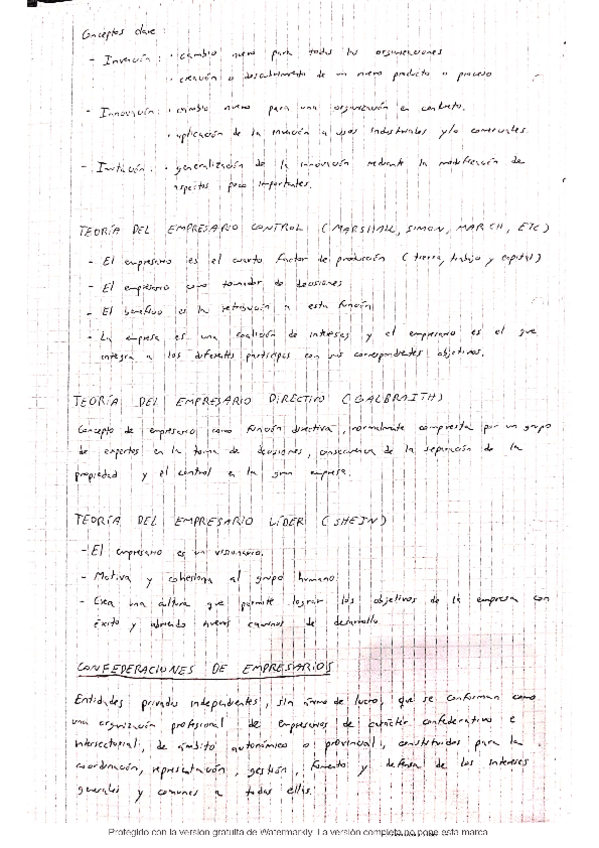 Conceptos clave:
- Invención: · cambio nuevo para todas las organizaciones
· creación o descubrimiento de un nuevo producto o proceso
- Innovación: · cambio nuevo para una organización en concreto.
· aplicación de la invención a usos industriales y/o comerciales.
- Imitación: · generalización de la innovación mediante la modificación de
aspectos poco importantes.
TEORÍA DEL EMPRESARIO CONTROL (MARSHALL, SIMON, MARCH, ETC)
- El empresario es el cuarto factor de producción (tierra, trabajo y capital)
- El empresario como tomador de decisiones
- El beneficio es la retribución a esta función
- La empresa es una coalición de intereses y el empresario es el que
integra a los diferentes partícipes con sus correspondientes objetivos.
TEORÍA DEL EMPRESARIO DIRECTIVO (GALBRAITH)
Concepto de empresario como función directiva, normalmente compuesta por un grupo
de expertos en la toma de decisiones, consecuencia de la separación de la
propiedad y el control en la gran empresa.
TEORÍA DEL EMPRESARIO LÍDER (SHEIN)
- El empresario es un visionario.
- Motiva y cohesiona al grupo humano
- Crea una cultura que permite lograr los objetivos de la empresa con
éxito y abriendo nuevos caminos de desarrollo
CONFEDERACIONES DE EMPRESARIOS
Entidades privadas independientes, sin ánimo de lucro, que se conforman como
una organización profesional de empresarios de carácter confederativo e
intersectorial, de ámbito autonómico o provincial, constituidas para la
coordinación, representación, gestión, fomento y defensa de los intereses
generales y comunes a todas ellas.
Protegido con la versión gratuita de Watermarkly. La versión completa no pone esta marca.